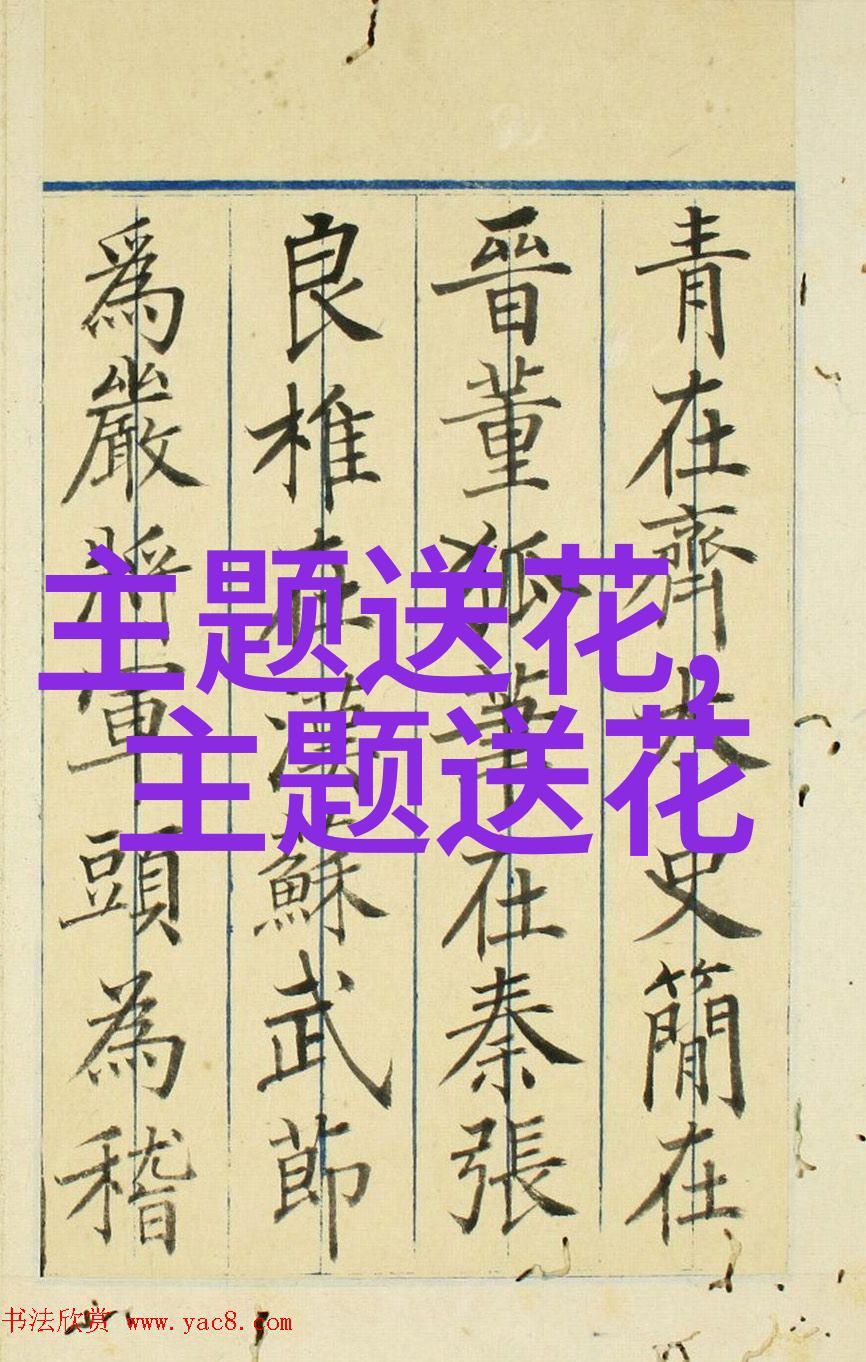 青在齊太史簡在
晉董狐筆在秦張
良椎在漢蘇武節
爲嚴將軍頭為稽
主题送花,
主题送花
书法欣赏 www.yac8.com